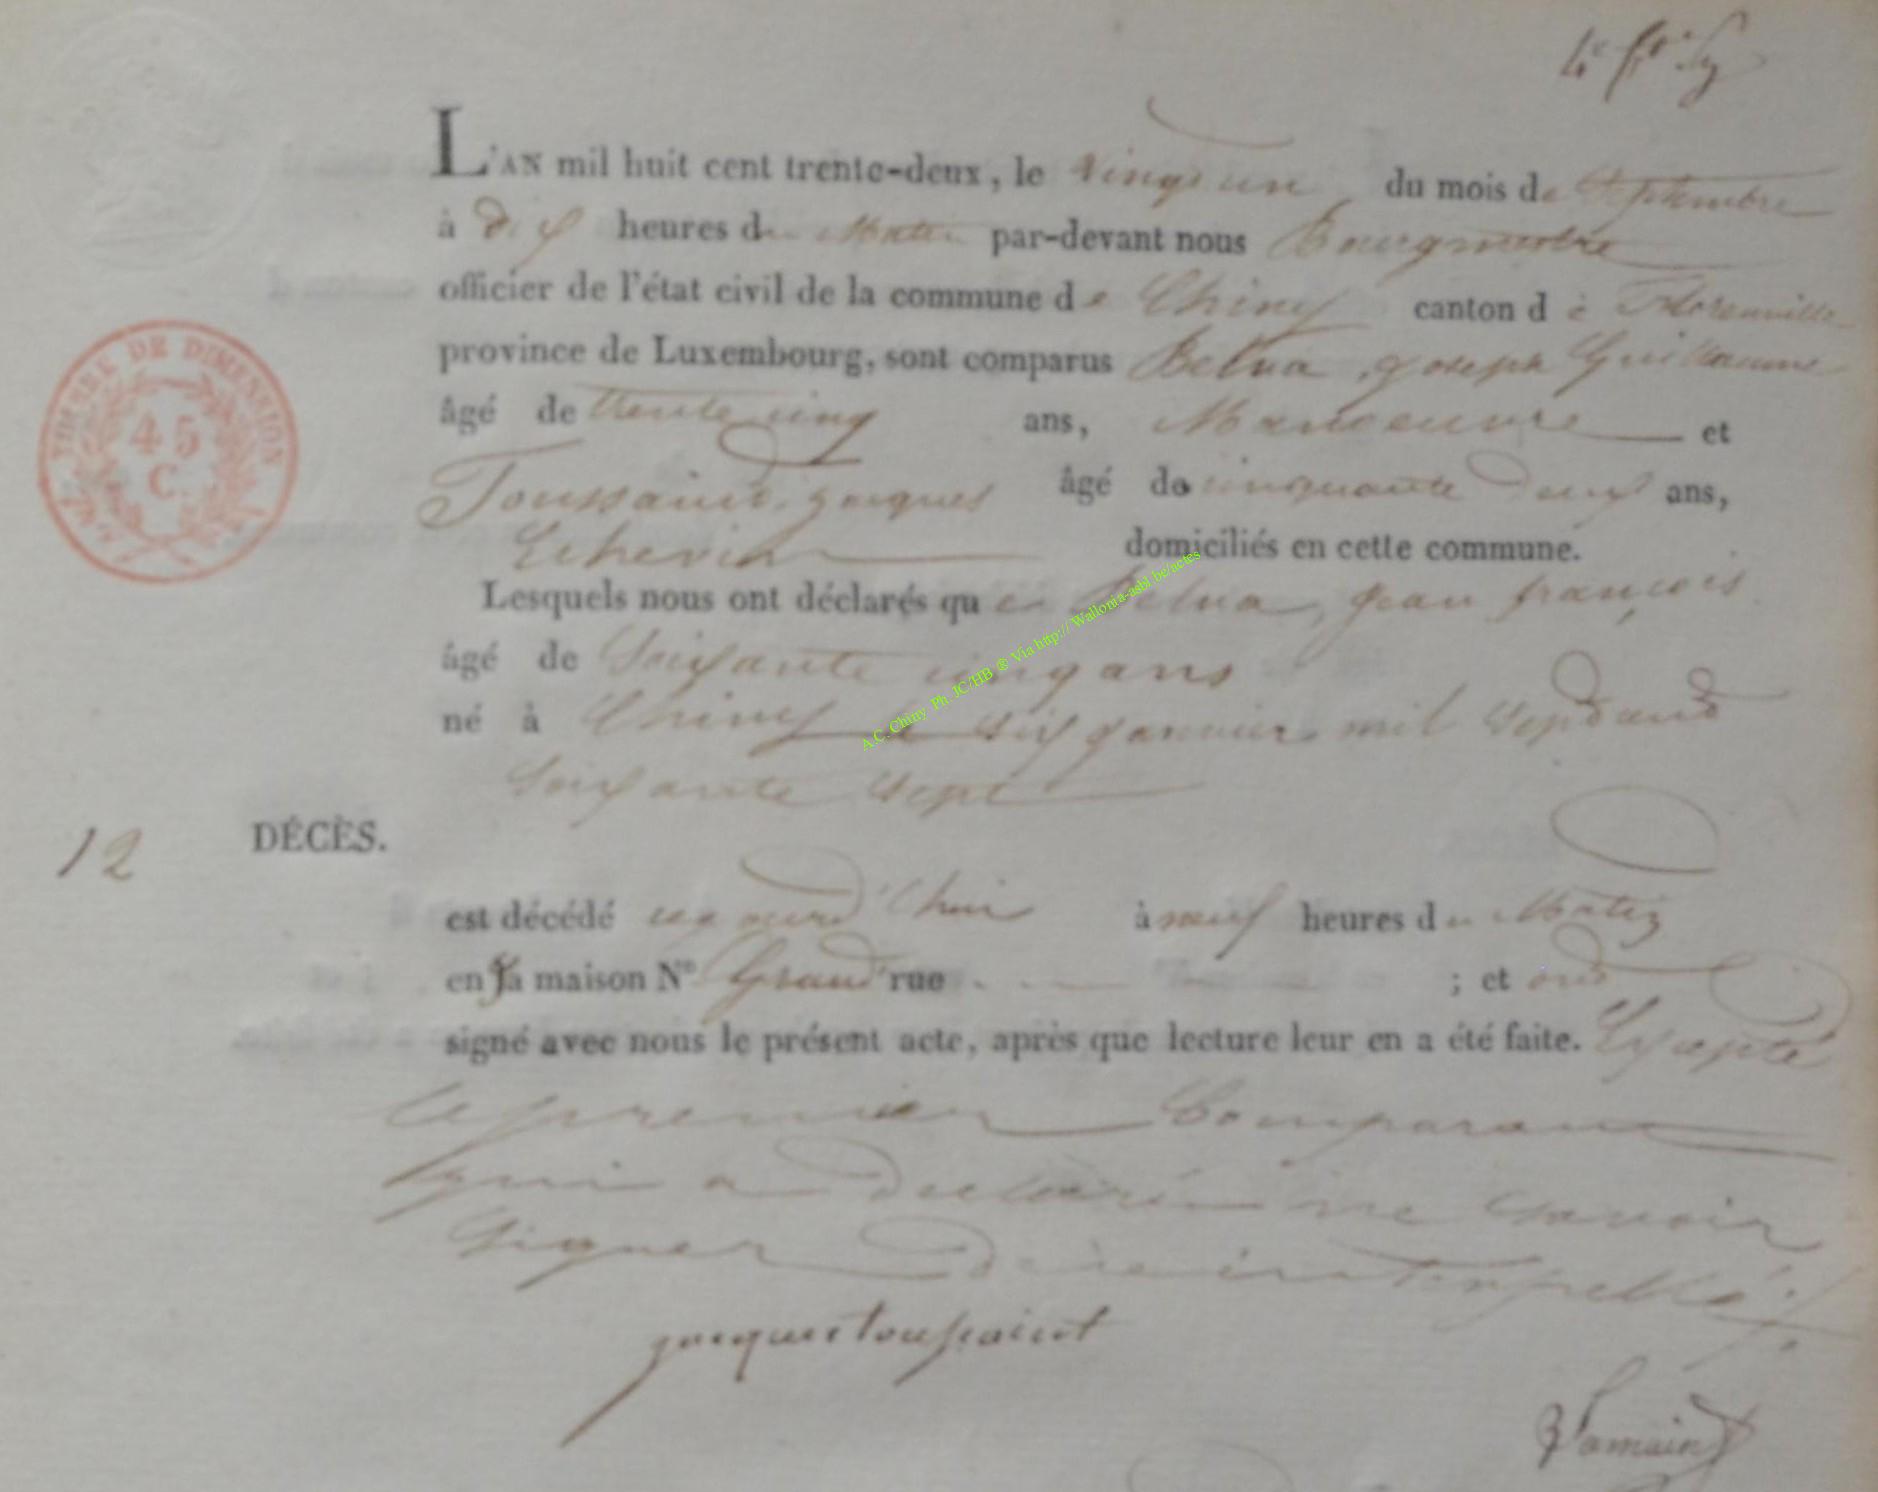 L'AN mil huit cent trente-deux, le vingt un du mois de Septembre
à dix heures du Matin par-devant nous Bourgmestre
officier de l'état civil de la commune de Chiny canton de Florenville
province de Luxembourg, sont comparus Belva, joseph Guillaume
âgé de trente cinq ans, Manoeuvre et
Toussaint jacques âgé de cinquante deux ans,
Echevin domiciliés en cette commune.
Lesquels nous ont déclarés que Belva, jean françois
âgé de Soixante cinq ans
né à Chiny le six janvier mil Sept cent
Soixante Sept
12 DÉCÈS.
est décédé aujourd'hui à neuf heures du Matin
en sa maison N° Grand rue ; et ont
signé avec nous le présent acte, après que lecture leur en a été faite. Excepté
le premier Comparant
qui a déclaré ne Savoir
Signer de ce interpellé
jacques toussaint
TIMBRE DE DIMENSION
45
C.
A.C. Chiny Ph. JC/HB ® Via http:// Wallonia-asbl.be/actes